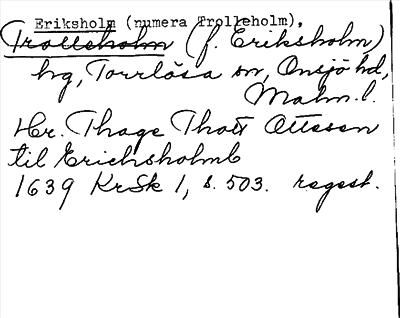 Eriksholm (numera Trolleholm),
Trolleholm (f. Eriksholm)
hg, Torrlösa sn, Onsjö hd,
Malm. l.
Hr. Thage Thott Ottesen
til Erichsholmb
1639 KrSk 1, s. 503. regest.